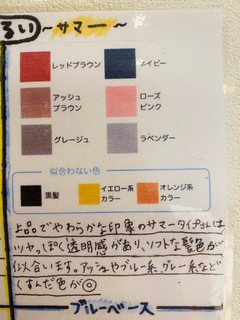 るい
〜サマー〜
レッドブラウン
ネイビー
アッシュ
ブラウン
ローズ
ピンク
グレージュ
ラベンダー
似合わない色
黒髪
イエロー系
カラー
オレンジ系
カラー
上品でやわらかな印象のサマータイプさんは
ツヤっぽく透明感があり、ソフトな髪色が
似合います。アッシュやブルー系、グレー系など
くすんだ色が◎
ブルーベース